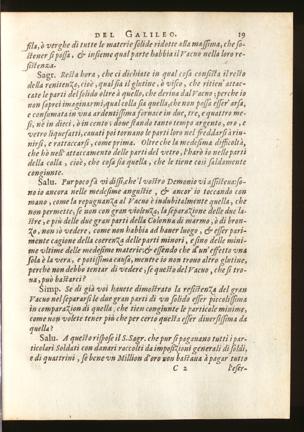 DEL GALILEO. 19
sila, ò verghe di tutte le materie solide ridotte alla massima, che so-
stener si possa, & insieme qual parte habbia il Vacuo nella loro re-
sistenza.
Sagr. Resta hora, che ci dichiate in qual cosa consista il resto
della renitenza, cioè, qual sia il glutine, ò visco, che ritien' attac-
cate le parti del solido oltre à quello, che deriva dal Vacuo: perche io
non saprei imaginarmi, qual colla sia quella, che non possa esser' arsa,
e consumata in una ardentissima fornace in due, tre, e quattro me-
si, nè in dieci, ò in cento; dove stando tanto tempo argento, oro, e
vetro liquefatti, cavati poi tornano le parti loro nel freddarsi à riu-
nirsi, e rattaccarsi, come prima. Oltre che la medesima difficoltà,
che hò nell' attaccamento delle parti del vetro, l'harò io nelle parti
della colla, cioè, che cosa sia quella, che le tiene così saldamente
congiunte.
Salu. Pur poco fà vi dissi, che'l vostro Demonio vi assisteva: so-
no io ancora nelle medesime angustie, & ancor io toccando con
mano, come la repugnanza al Vacuo è indubitalmente quella, che
non permette, se non con gran violenza, la separazione delle due la-
stre, e più delle due gran parti della Colonna di marmo, ò di bron-
zo, non sò vedere, come non habbia ad haver luogo, & esser pari-
mente cagione della coerenza delle parti minori, e sino delle mini-
me ultime delle medesime materie; & essendo che d'un'effetto una
sola è la vera, e potissima causa, mentre io non trovo altro glutine,
perche non debbo tentar di vedere, se questo del Vacuo, che si tro-
va, può bastarci?
Simp. Se di già voi havete dimostrato la resistenza del gran
Vacuo nel separarsi le due gran parti di un solido esser piccolissima
in comparazion di quella, che tien congiunte le particole minime,
come non volete tener più che per certo questa esser diversissima da
quella?
Salu. A questo rispose il S. Sagr. che pur si pagano tutti i par-
ticolari Soldati con danari raccolti da imposizioni generali di soldi,
e di quattrini, se bene un Million d'oro non bastava à pagar tutto
C 2 l'eser-